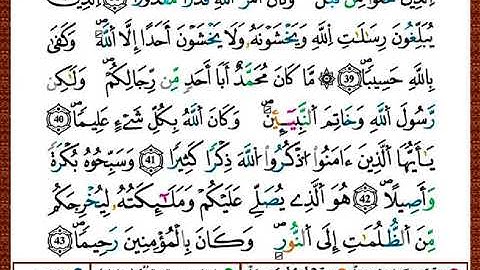 الَّذِينَ خَلَوْا مِن قَبْلُ وَكَانَ أَمْرُ اللَّهِ قَدَرًا مَّقْدُورًا الَّذِينَ
يُبَلِّغُونَ رِسَالَاتِ اللَّهِ وَيَخْشَوْنَهُ وَلَا يَخْشَوْنَ أَحَدًا إِلَّا اللَّهَ وَكَفَىٰ
بِاللَّهِ حَسِيبًا 39 ۞ مَّا كَانَ مُحَمَّدٌ أَبَا أَحَدٍ مِّن رِّجَالِكُمْ وَلَٰكِن
رَّسُولَ اللَّهِ وَخَاتِمَ النَّبِيٓـِٔينَ وَكَانَ اللَّهُ بِكُلِّ شَيْءٍ عَلِيمًا 40
يَٰأَيُّهَا الَّذِينَ ءَامَنُوا اذْكُرُوا اللَّهَ ذِكْرًا كَثِيرًا 41 وَسَبِّحُوهُ بُكْرَةً
وَأَصِيلًا 42 هُوَ الَّذِي يُصَلِّي عَلَيْكُمْ وَمَلَٰٓئِكَتُهُ لِيُخْرِجَكُم
مِّنَ الظُّلُمَٰتِ إِلَى النُّورِ وَكَانَ بِالْمُؤْمِنِينَ رَحِيمًا 43